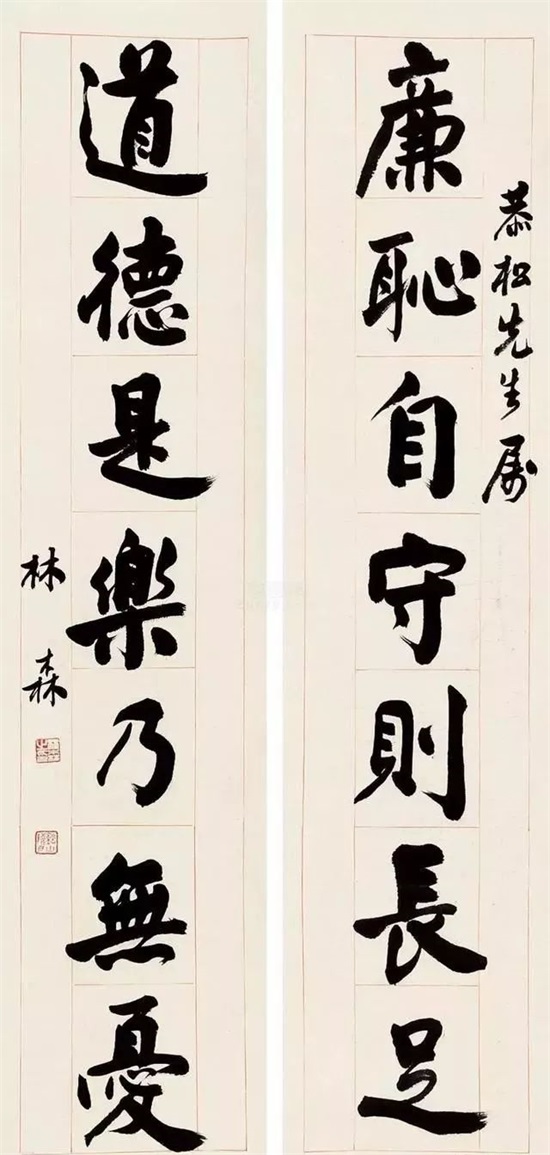 恭松先生属
廉恥自守則長足
道德是樂乃無憂
林森